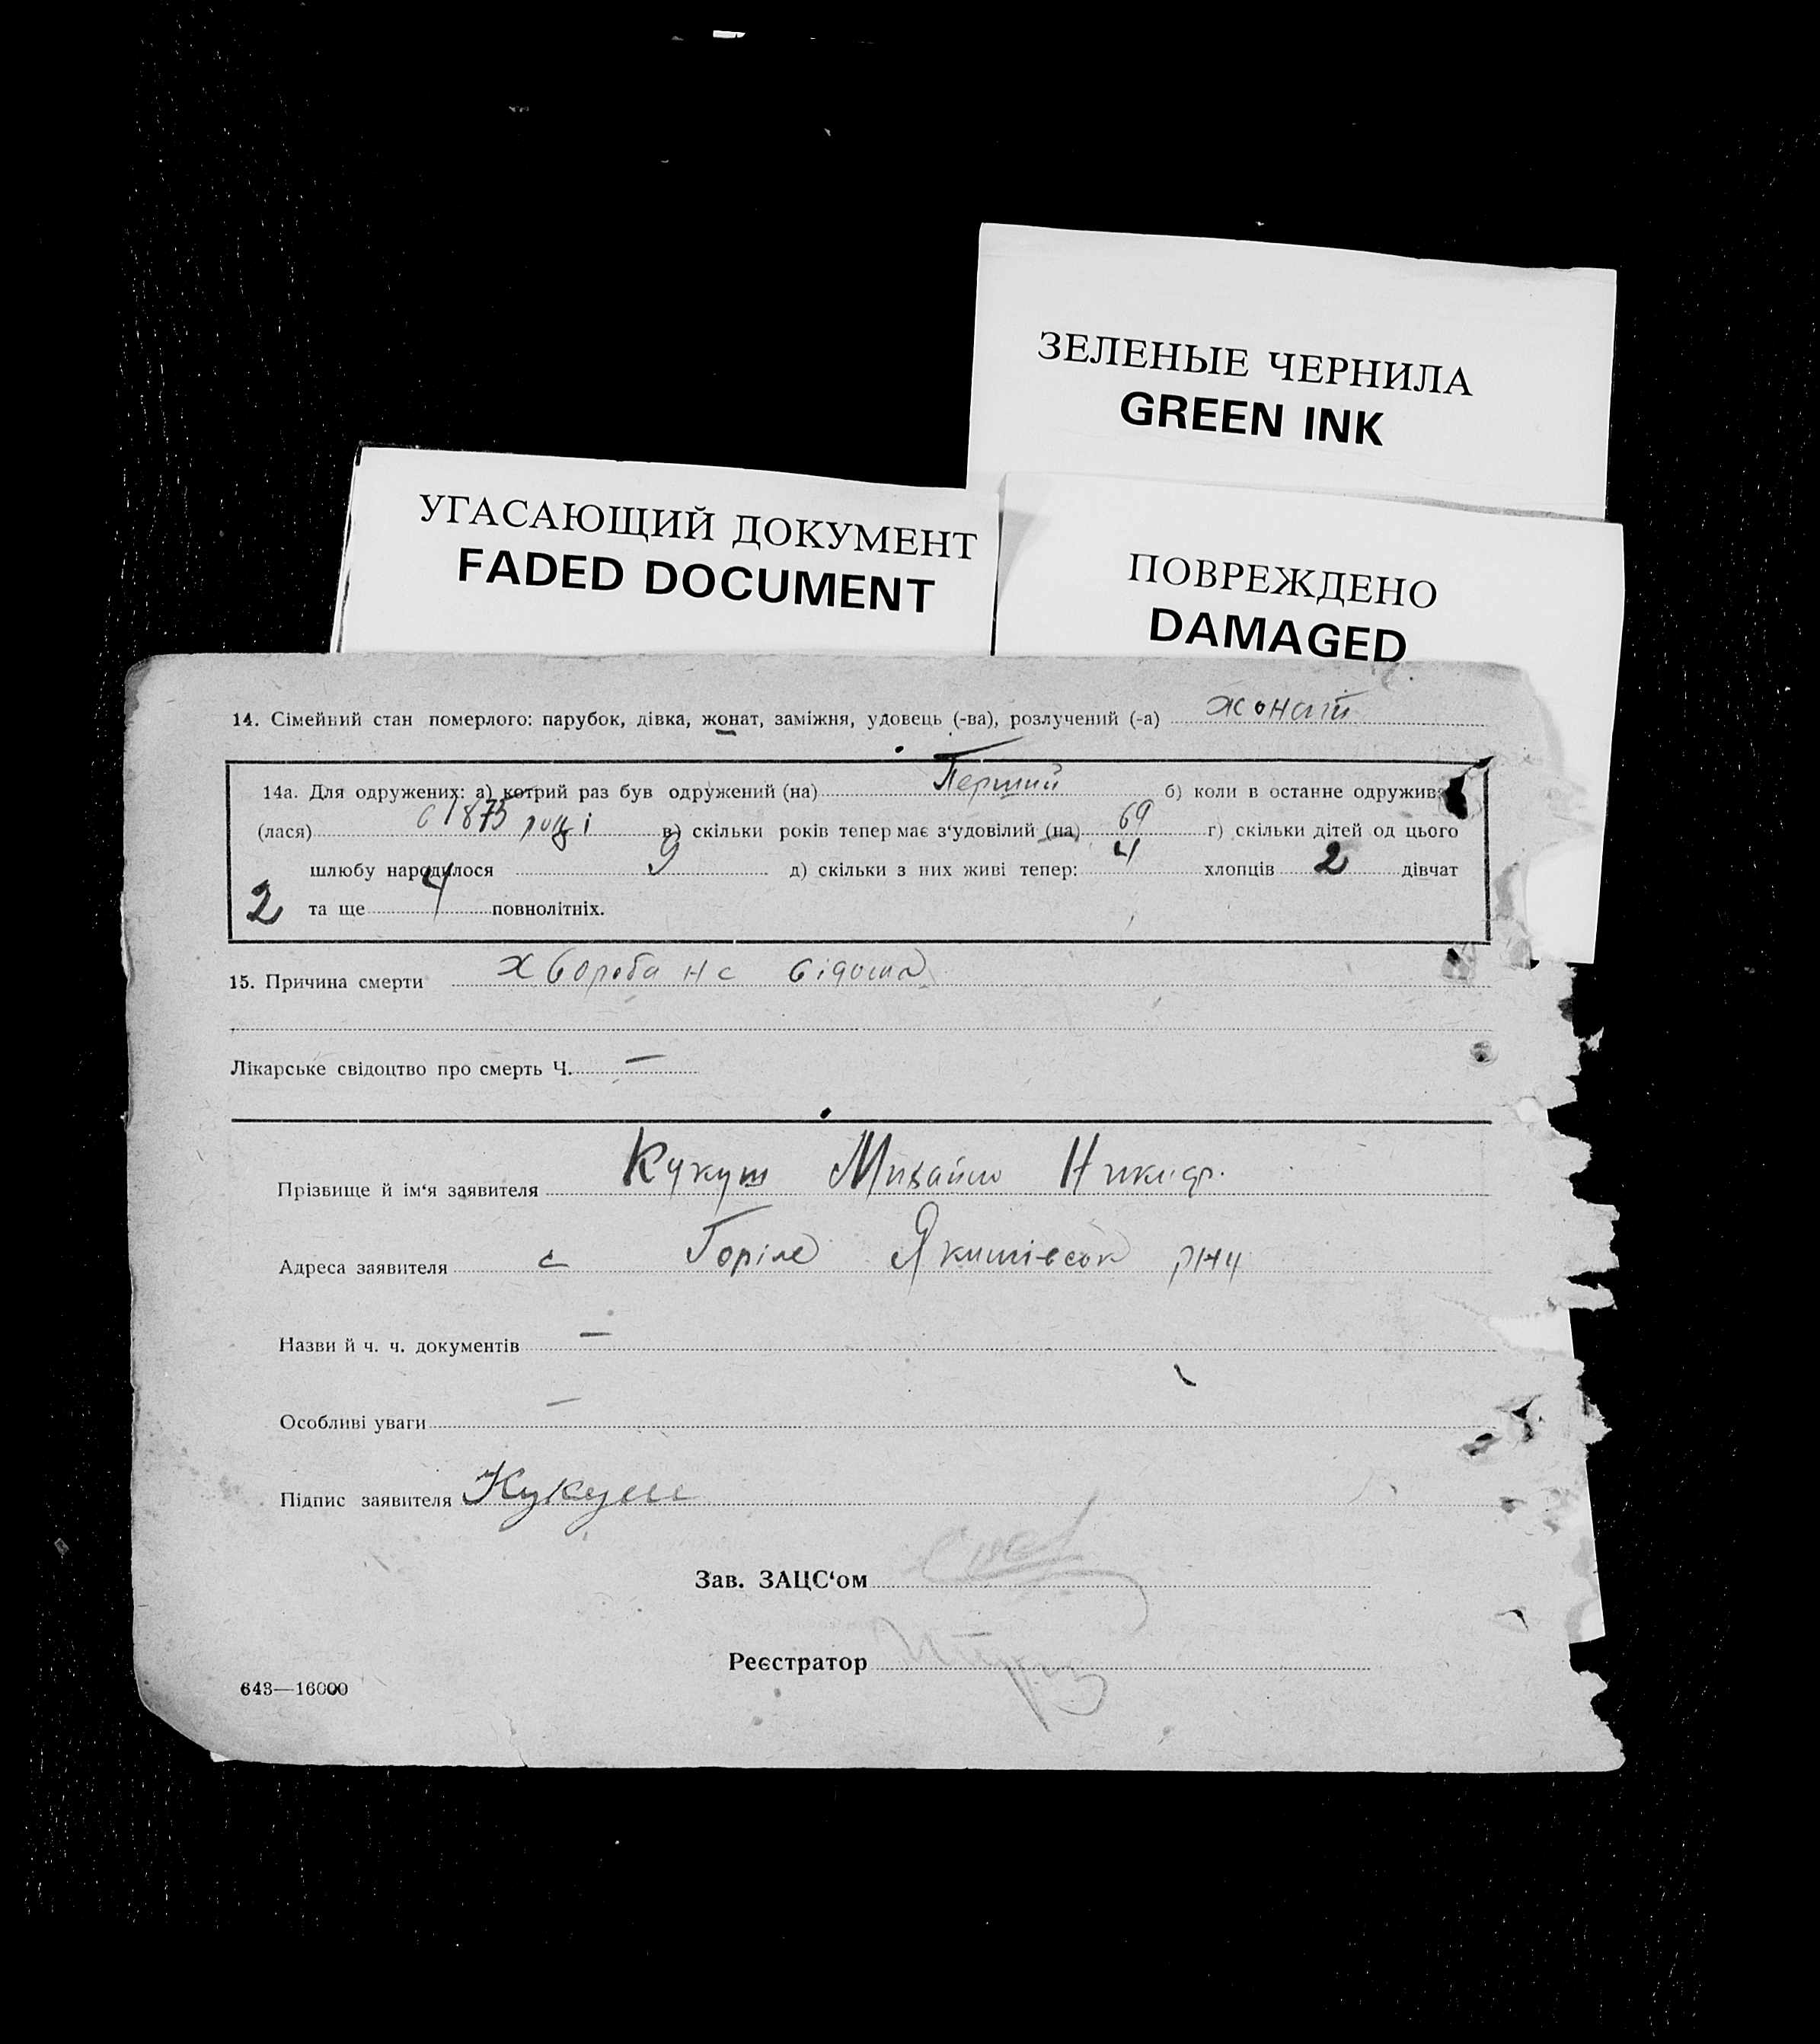 ЗЕЛЕНЫЕ ЧЕРНИЛА
GREEN INK
УГАСАЮЩИЙ ДОКУМЕНТ
FADED DOCUMENT
ПОВРЕЖДЕНО
DAMAGED
14. Сімейний стан померлого: парубок, дівка, жонат, заміжня, удовець (-ва), розлучений (-а) жонат
14а. Для одружених: а) котрий раз був одружений (на) Перший б) коли в останне одружив
(лася) с 1875 році в) скільки років тепер має з‘удовілий (на) 69 г) скільки дітей од цього
шлюбу народилося 9 д) скільки з них живі тепер: 4 хлопців 2 дівчат
2 та ще 4 повнолітніх.
15. Причина смерти Хвороба не відома
Лікарське свідоцтво про смерть Ч. —
Прізвище й ім‘я заявителя Кукуш Михайло Никиф.
Адреса заявителя с Горіле рну
Назви й ч. ч. документів —
Особливі уваги —
Підпис заявителя Кукуш
Зав. ЗАЦС‘ом
Реєстратор
643—16000